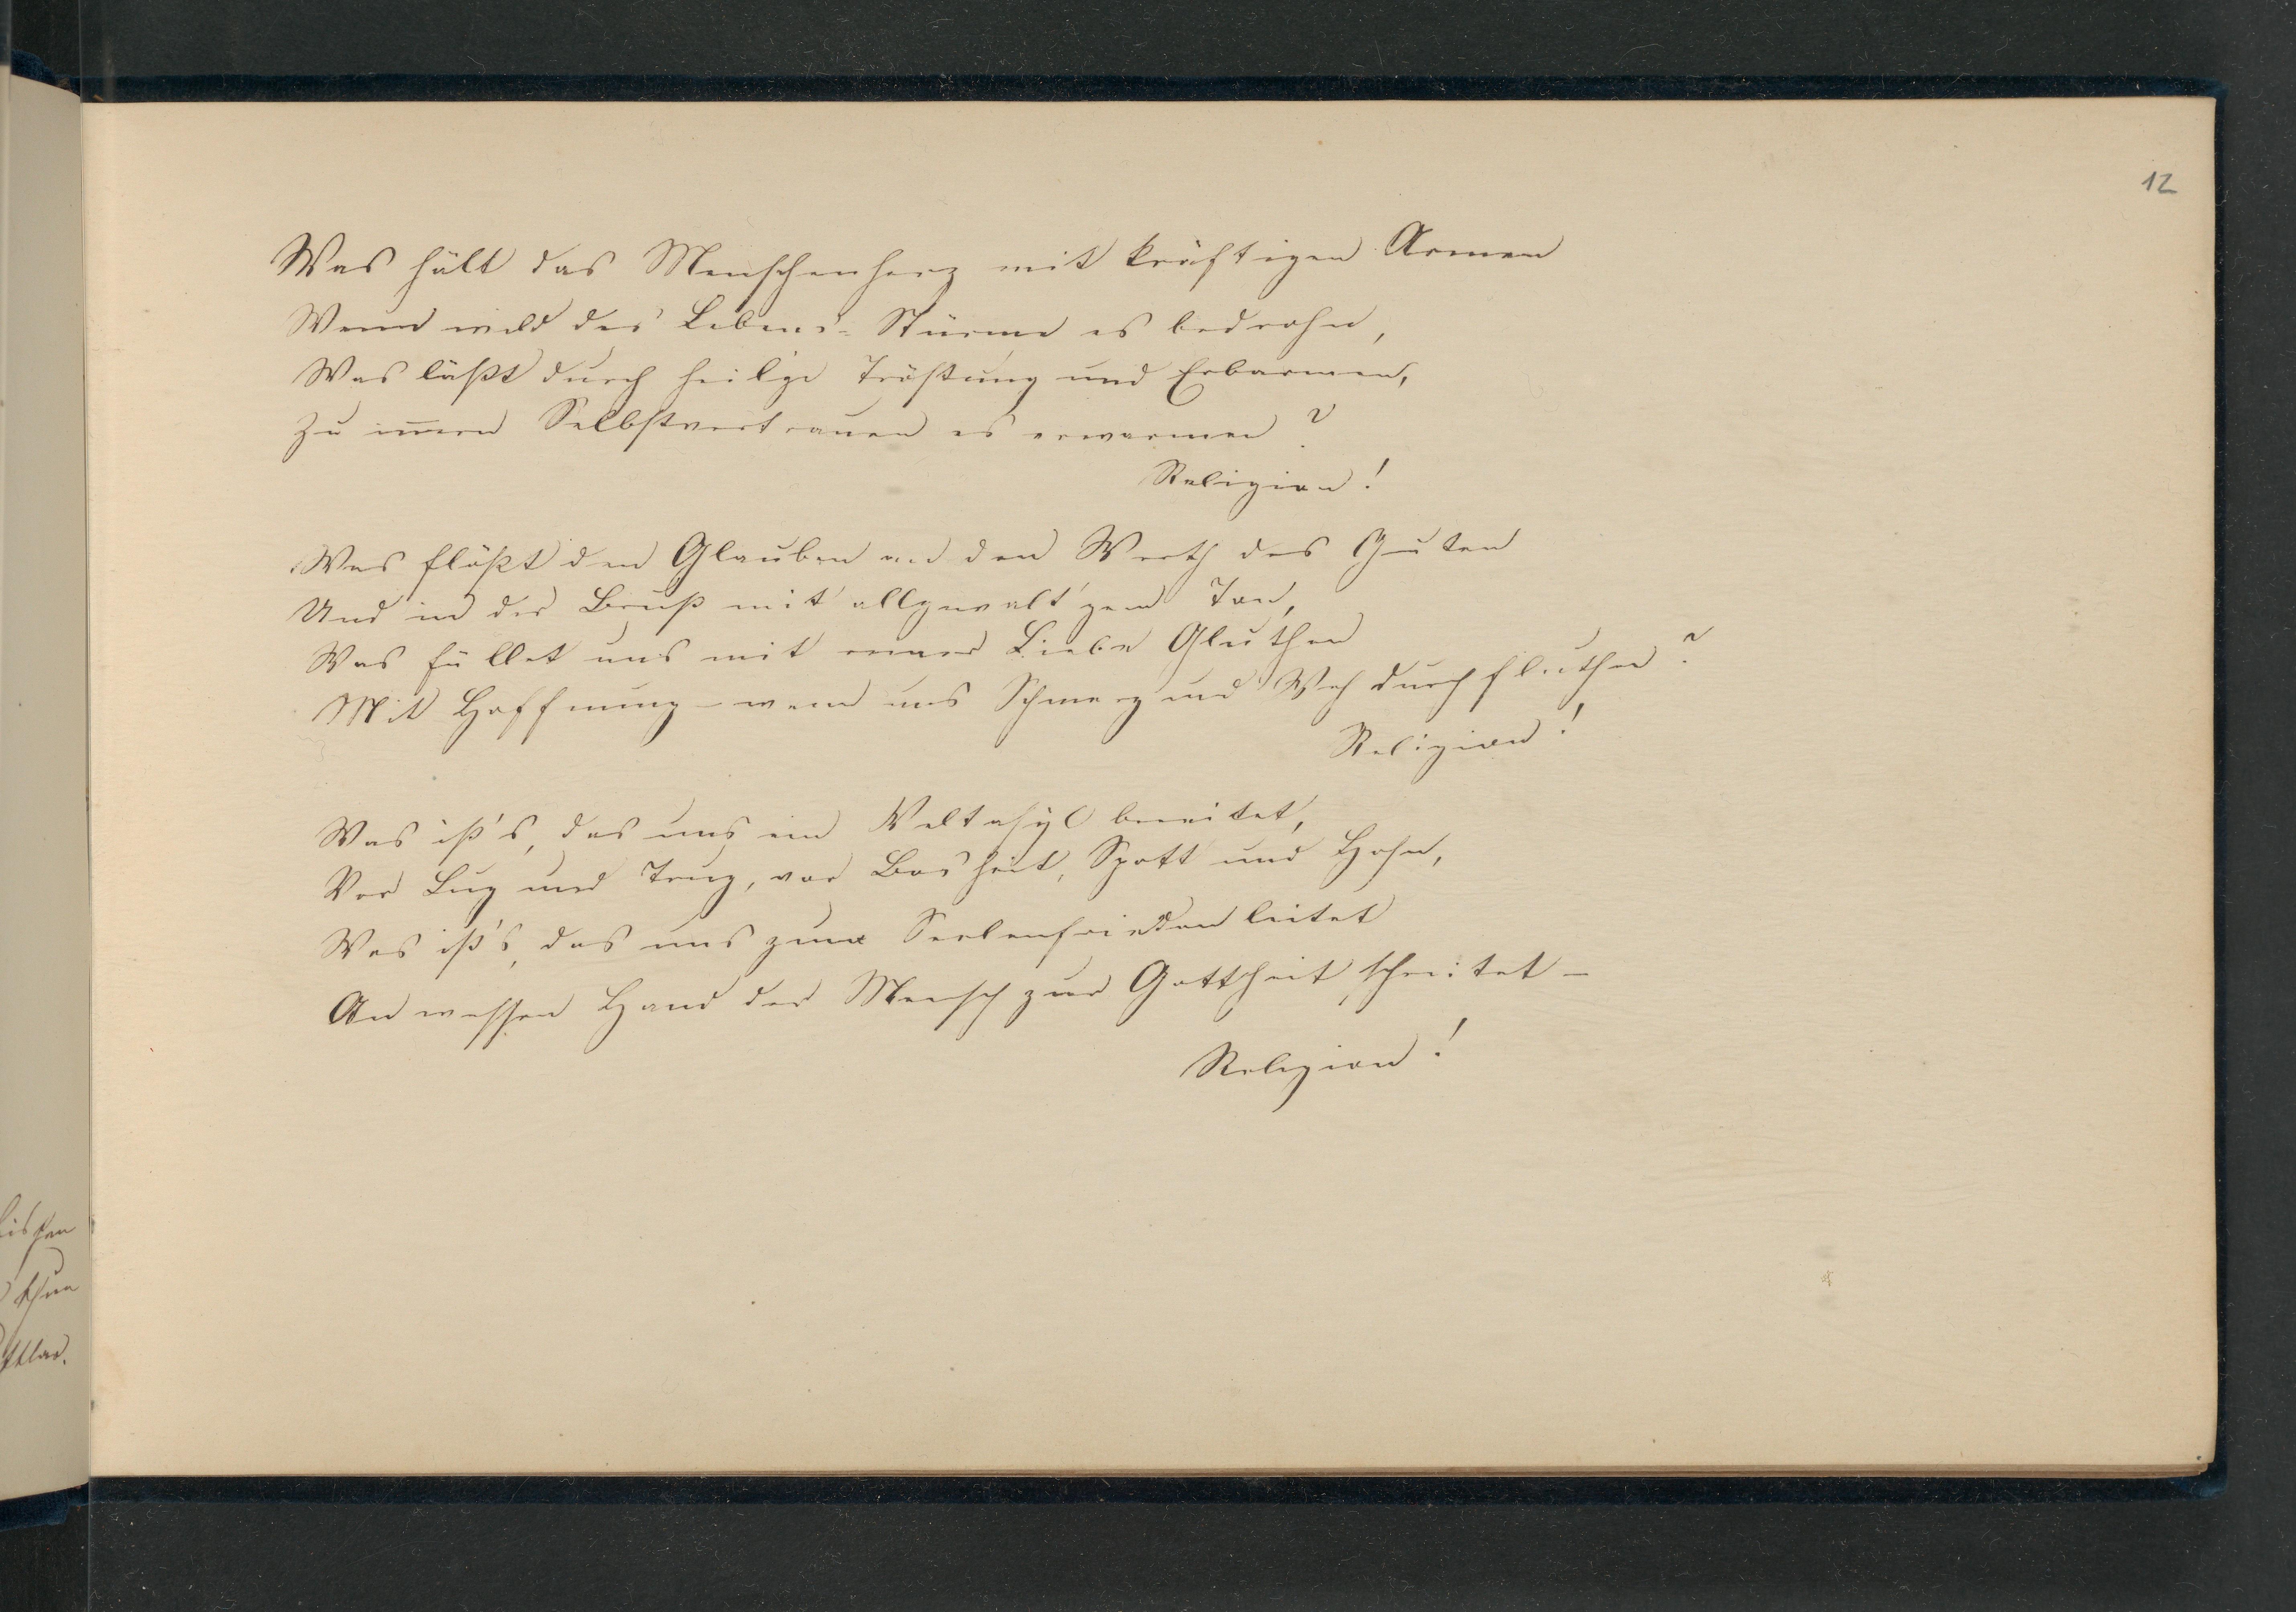 12
Was hält das Menschenherz mit kräftigen Armen
Wenn wild des Lebens-Stürme es bedrohn,
Was läßt durch heilge Tröstung und Erbarmen,
Zu innern Selbstvertrauen es erwarmen?
Religion!
Was flößt den Glauben an den Werth des Guten
Uns in der Brust mit allgewalt'gem Ton,
Was füllet uns mit reiner Liebe Gluthen
Mit Hoffnung - wenn uns Schmerz und Weh durchfluthen?
Religion!
Was ist's, das uns ein Weltasyl bereitet,
Vor Lug und Trug, vor Bosheit, Spott und Hohn,
Was ist's, das uns zum Seelenfrieden leitet
An wessen Hand der Mensch zur Gottheit schreitet -
Religion!